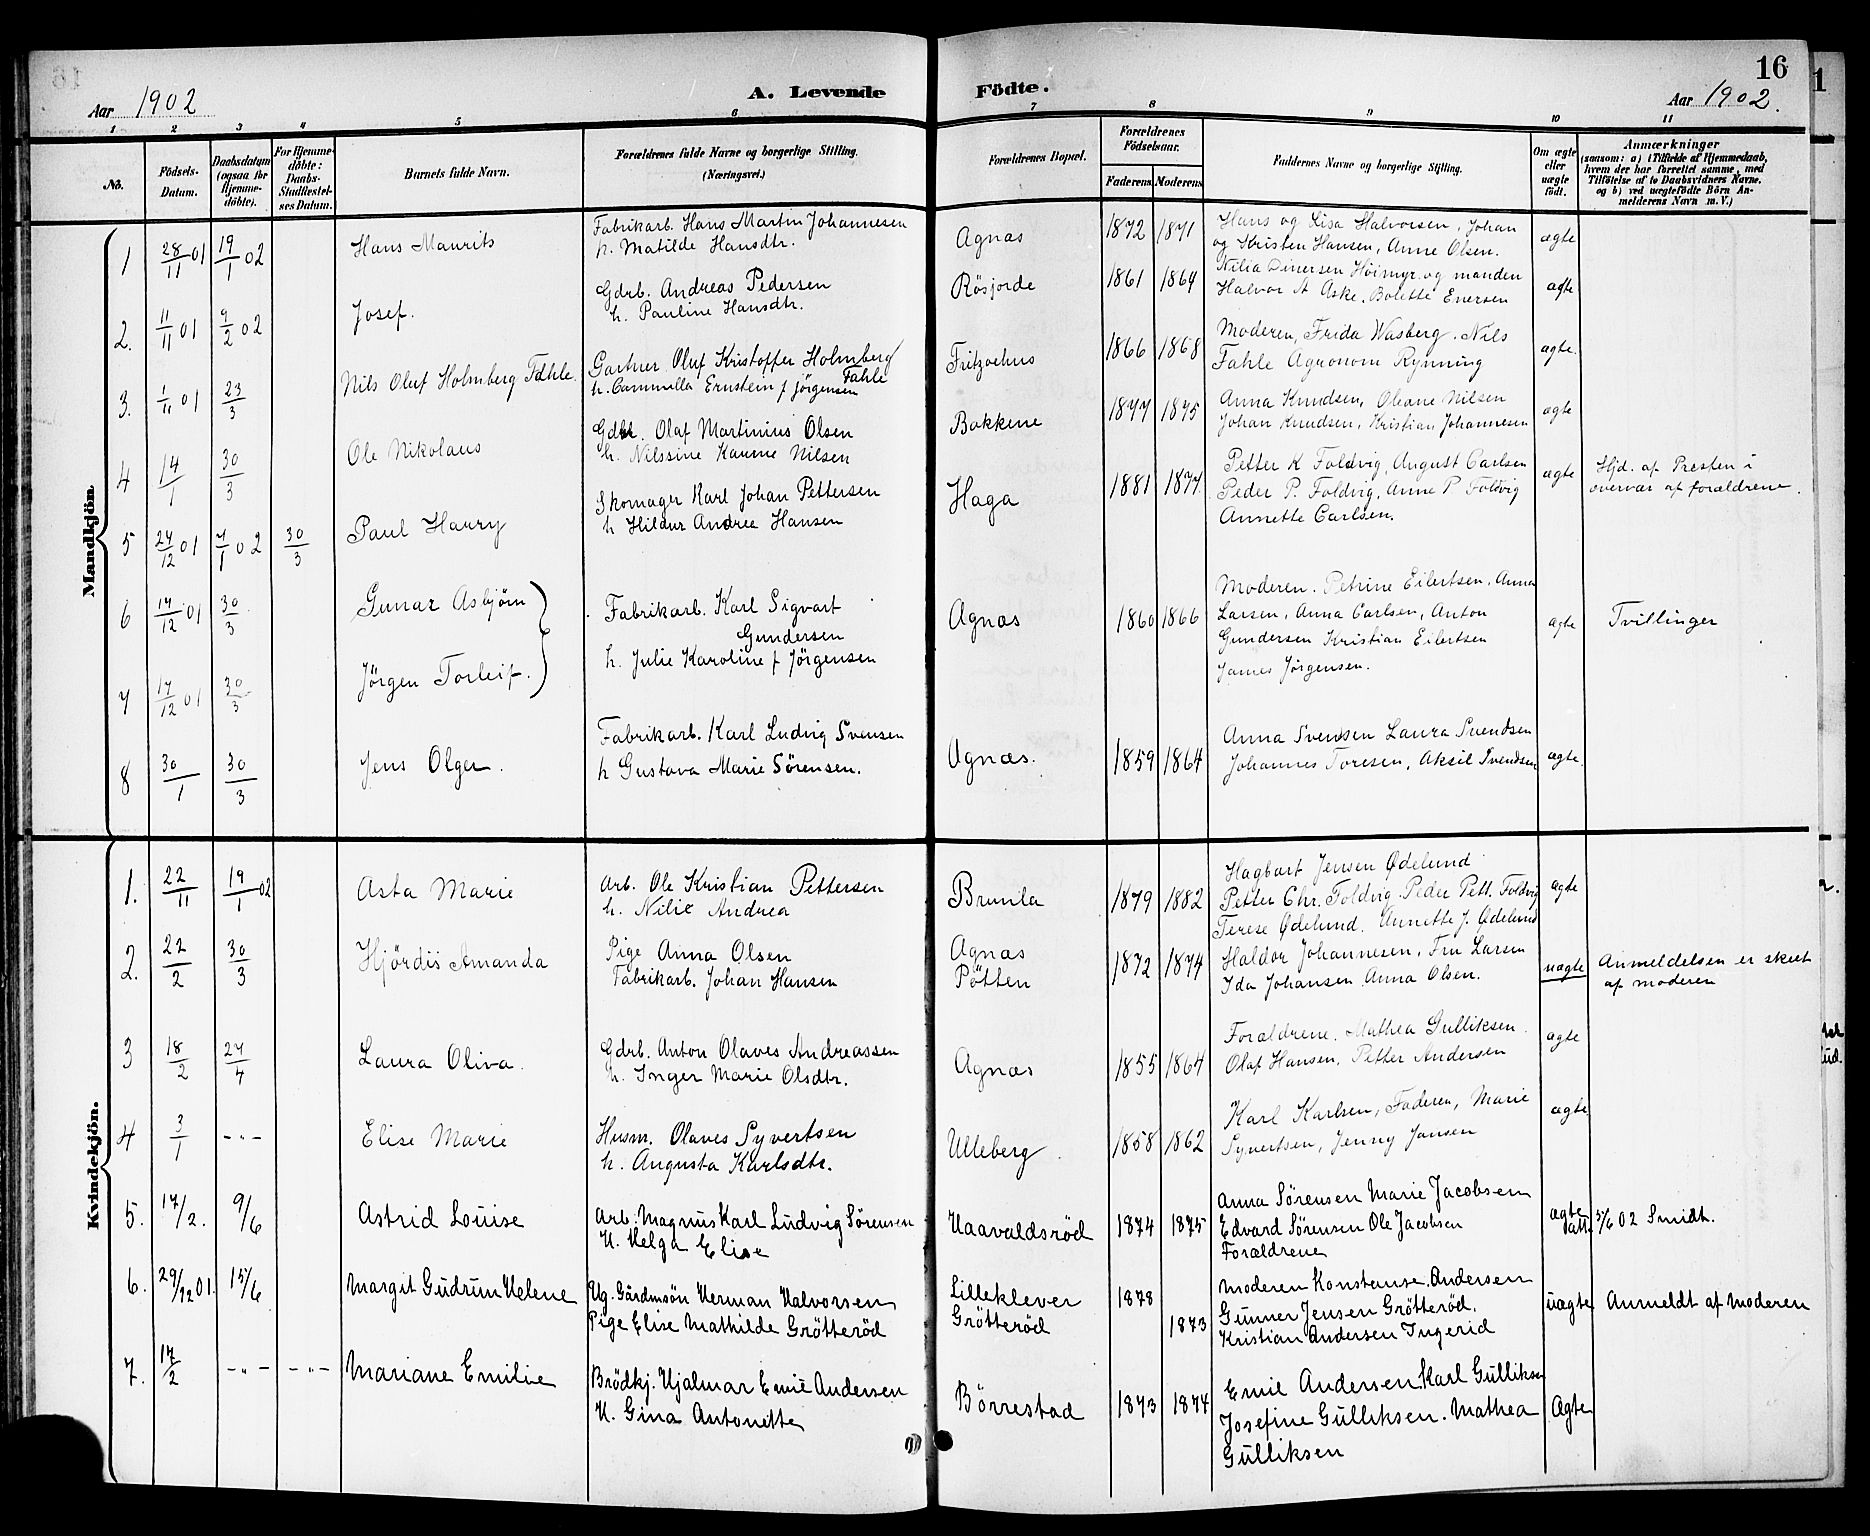 16
Aar 1902 A. Levende Födte. Aar 1902.
1 2 3 4 5 6 7 8 9 10 11
No. Födsels-Datum. Daabsdatum (ogsaa for Hjemme-döbte). For Hjemme-döbte: Daabs-Stadfæstel-ses Datum. Barnets fulde Navn. Forældrenes fulde Navne og borgerlige Stilling. (Næringsvei.) Forældrenes Bopæl. Forældrenes Födselsaar. Faderens Moderens Faddernes Navne og borgerlige Stilling. Om ægte eller uægte födt. Anmærkninger (saasom: a) i Tilfælde af Hjemmedaab, hvem der har forrettet samme, med Tilföielse af to Daabsvidners Navne, og b) ved uægtefödte Börn An-melderens Navn m. V.)
Mandkjön.
1 28/11 01 19/1 02 Hans Maurits Fabrikarb. Hans Martin Johannesen Agnæs 1872 1871 Hans og Lisa Halvorsen, Johan ægte
h. Matilde Hansdtr. og Kristen Hansen, Anne Olsen.
2. 11/11 01 9/2 02 Josef. Gdrb. Andreas Pedersen Rösjorde 1861 1864 Nilia Dinersen Höimyr og manden ægte
h. Pauline Hansdtr. Halvor A Aske. Bolette Enersen
3. 1/11 01 23/3 Nils Oluf Holmberg Fahle Gartner Oluf Kristoffer Holmberg Fahle Fritzøehus 1866 1868 Moderen, Frida Wasberg. Nils ægte.
h. Cammilla Ernstein f Jörgensen Fahle Agronom Rynning
4 14/1 30/3 Ole Nikolaus Gdbr. Olaf Martinius Olsen Bakkene 1877 1875 Anna Knudsen, Oleane Nilsen ægte
h. Nilssine Kaume Nilsen Johan Knudsen, Kristian Johannesen
5 27/12 01 7/1 02 30/3 Paul Harry Skomager Karl Johan Pettersen Haga 1881 1877 Petter K Foldvig, August Carlsen ægte Hjd. af Presten i
h Hildur Andrea Hansen Peder P. Foldvig, Anne P Foldvig overvær af forældrene.
Annette Carlsen.
6 17/12 01 30/3 Gunnar Asbjörn Fabrikarb. Karl Sigvart Agnæs 1860 1866 Moderen. Petrine Eilertsen, Anna ægte Tvillinger
Gundersen Larsen, Anna Carlsen, Anton
h. Julie Karoline f Jörgensen Gundersen Kristian Eilertsen
7 17/12 01 30/3 Jörgen Torleif. James Jörgensen.
8 30/1 30/3 Jens Olger. Fabrikarb. Karl Ludvig Svensen Agnæs. 1859 1864 Anna Svensen Laura Svendsen ægte.
h Gustava Marie Sörensen. Johannes Toresen, Aksel Svendsen
Kvindekjön.
1. 22/11 19/1 02 Asta Marie Arb. Ole Kristian Pettersen Brunla 1879 1882 Hagbart Jensen Ødelund ægte
h. Nilie Andrea Petter Chr. Foldvig. Peder Pett. Foldvig
Terese Ødelund. Annette J. Ødelund
2. 22/2 30/3 Hjördis Amanda Pige Anna Olsen Agnæs 1872 1874 Haldor Johannesen, Fru Larsen uægte Anmeldelsen er skeet
Fabrikarb. Johan Hansen Pötten Ida Johansen Anna Olsen. af moderen
3 18/2 27/4 Laura Oliva. Gdrb. Anton Olaves Andreassen Agnæs 1855 1864 Forældrene. Mathea Gulliksen. ægte
h. Inger Marie Olsdtr. Olaf Hansen, Petter Andersen
4 3/1 -"- Elise Marie Husm. Olaves Syvertsen Ulleberg. 1858 1862 Karl Karlsen, Faderen, Marie ægte
h. Augusta Karlsdtr. Syvertsen, Jenny Jansen
5. 17/2. 9/6 Astrid Louise Arb. Magnus Karl Ludvig Sörensen Haavaldsröd 1874 1875 Anna Sörensen Marie Jacobsen ægte att. 5/6 02 Smidt.
H. Helga Elise Edvard Sörensen Ole Jacobsen
Forældrene
6. 29/12 01. 15/6 Margit Gudrun Helene Ug. Gårdmsön Herman Halvorsen Lilleklever 1878 Moderen Konstanse Andersen uægte Anmeldt af moderen
Pige Elise Mathilde Grötteröd Grötteröd 1873 Gunner Jensen Grötteröd.
Kristian Andersen Ingerid
7. 17/2 -"- -"- Mariane Emilie Brödkj. Hjalmar Emil Andersen Börrestad 1873 1874 Emil Andersen Karl Gulliksen Ægte
H. Gina Antonette Josefine Gulliksen. Mathea
Gulliksen